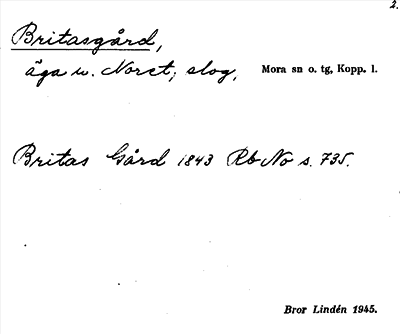 2.
Britasgård,
äga u. Noret; slog, Mora sn o. tg, Kopp. l.
Britas Gård 1843 Rb No s. 735.
Bror Lindén 1945.